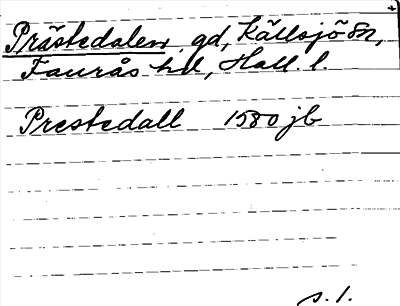 Prästedalen gd, Källsjö sn,
Faurås hd, Hall. l.
Prestedall 1580 jb
s. 1.